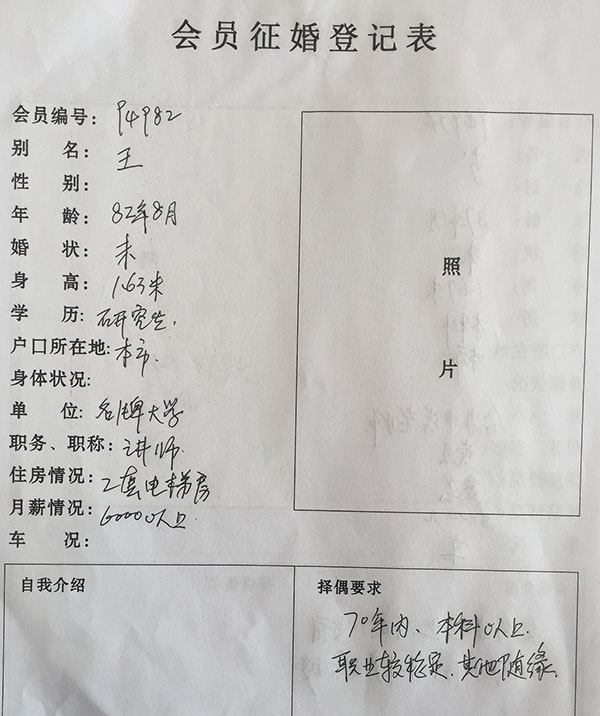 会员征婚登记表
会员编号：94982
别 名：王
性 别：
年 龄：82年8月
婚 状：未
身 高：1.63米
学 历：研究生.
户口所在地：本市.
身体状况：
单 位：名牌大学
职务、职称：讲师.
住房情况：2套电梯房
月薪情况：6000以上.
车 况：
照
片
自我介绍
择偶要求
70年内、本科以上.
职业较稳定.其他随缘。